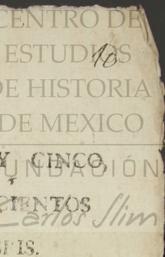 CENTRO DE
ESTUDIOS
10
DE HISTORIA
DE MEXICO
Y CINCO,
FUNDACIÓN
PIENTOS
Carlos Slim
SEIS.